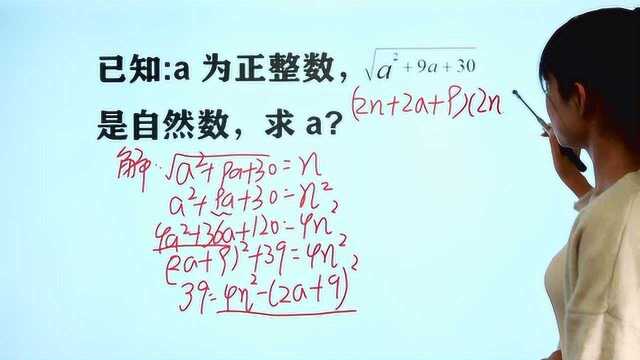 已知:a 为正整数，√(a²+9a+30)
是自然数，求 a?
(2n+2a+9)(2n
解:√(a²+9a+30)=n
a²+9a+30=n²
4a²+36a+120=4n²
(2a+9)²+39=4n²
39=4n²-(2a+9)²